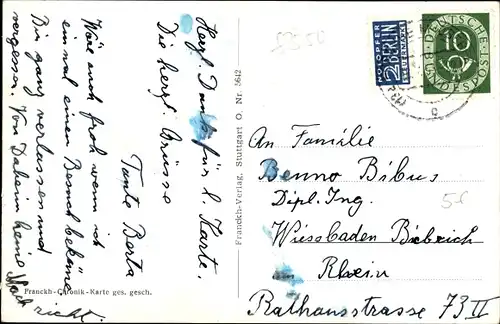 Herzl. Dank für l. Karte.
Die herzl. Grüsse
Tante Berta
Wäre auch froh wenn ich
einmal einen Besuch bekäme
Bin ganz verlassen und
vergessen. Von Daheim keine
Nachricht.
Franckh-Chronik-Karte ges. gesch.
Franckh-Verlag, Stuttgart O, Nr. 5642
NOTOPFER
2 BERLIN
STEUERMARKE
DEUTSCHE
10
BUNDESPOST
An Familie
Benno Bibus
Dipl. Ing.
Wiesbaden Biebrich
Rhein
Rathausstrasse 73 II